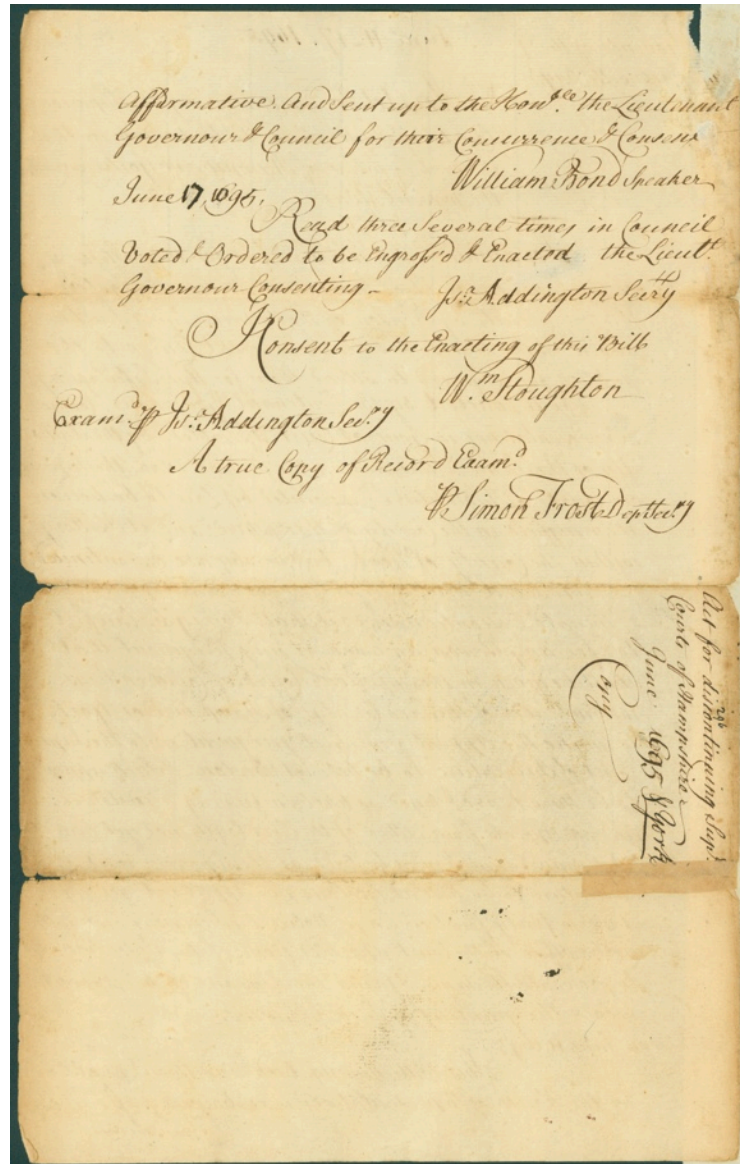 Affirmative. And Sent up to the Honble. the Lieutenant
Governour & Council for their Concurrence & Consent
William Bond Speaker
June 17, 1695.
Read three Several times in Council
Voted & Ordered to be Engross'd & Enacted the Lieut.
Governour Consenting -
Isa: Addington Secry
I Consent to the Enacting of this Bill
Wm. Stoughton
Examd. ⅌ Isa: Addington Secry
A true Copy of Record Examd.
⅌ Simon Frost Dep Secry
Act for discontinuing Supr.
Courts of Hampshire
June 1695 & York
Copy